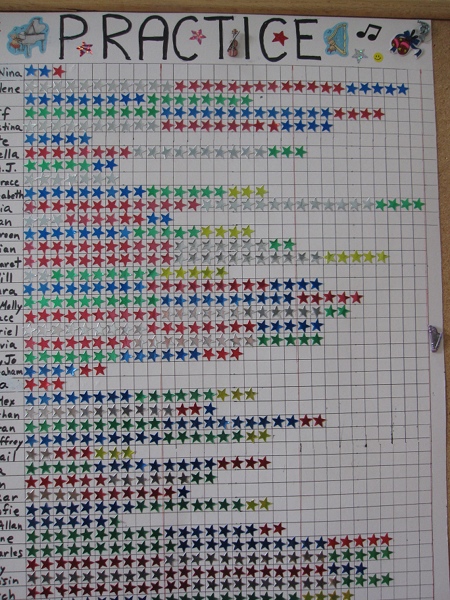 PRACTICE
Nina
lene
ff
tina
te
ella
.J.
race
abeth
ia
an
reon
ian
garet
Will
ara
Molly
ace
riel
via
Jo
aham
a
lex
than
yan
ffrey
ail
a
n
ar
fie
Allan
ne
arles
y
isin
ch